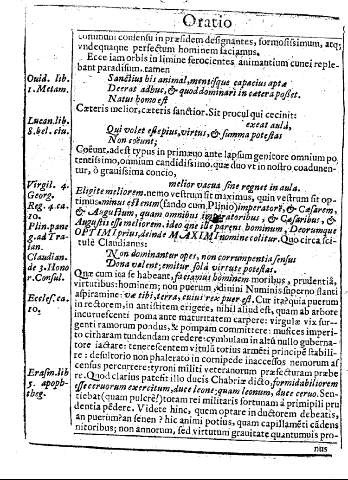 Oratio
communi consensu in præsidem designantes, formosissimum, atq;
vndequaque perfectum hominem faciamus.
Ecce iam orbis in limine ferocientes animantium cunei reple-
bant paradisum. tamen
Ouid. lib.
1. Metam.
Sanctius his animal, mentisque capacius aptæ
Deerat adhuc, & quod dominari in cætera posset.
Natus homo est
Cæteris melior, cæteris sanctior. Sit procul qui cecinit:
Lucan. lib.
8. bel. ciu.
exeat aulâ,
Qui volet esse pius, virtus, & summa potestas
Non coëunt;
Coëunt. adest typus in primæuo ante lapsum genitore omnium po
tentissimo, omnium candidissimo. quæ duo vt in nostro coadunen-
tur, ô grauissima concio,
Virgil. 4.
Georg.
Reg. 4. ca.
10.
Plin. pane
g. ad Tra-
ian.
Claudian.
de 3. Hono
r. Consul.
melior vacua sine regnet in aula.
Eligite meliorem. nemo vestrûm sit maximus, quin vestrûm sit op-
timus. minus est enim (fando cum Plinio) imperatorẽ, & Cæsarem,
& Augustum, quam omnibus imperatoribus, & Cæsaribus, &
Augustis esse meliorem. ideo que ille parens hominum, Deorumque
OPTIMI prius, deinde MAXIMI nomine colitur. Quo circa sci-
tulè Claudianus:
Non dominantur opes, non corrumpentia sensus
Dona valent; emitur solâ virtute potestas.
Eccles. ca.
10.
Quæ cum ita se habeant, faciamus hominem moribus, prudentiâ,
virtutibus: hominem; non puerum, diuini Numinis superno flanti
aspiramine: væ tibi, terra, cuius rex puer est. Cur ita? quia puerum
in rectorem, in antistitem erigere, nihil aliud est, quam ab arbore
incuruescenti poma ante maturitatem carpere: virgulæ vix sur-
genti ramorum pondus, & pompam committere: musices imperi-
to citharam tundendam credere: cymbulam in altû nullo guberna-
tore iactare: tenerescentem vitulû totius armẽti principẽ stabili-
re: desultorio non phalerato in cornipede inaccessos nemorum as
census percorrere: tyroni militi veteranorum præfecturam præbe
Erasm. lib
5. apoph-
theg.
re. Quod clarius patefit illo ducis Chabriæ dicto, formidabiliorem
esse ceruorum exercitum, duce leone; quam leonum, duce ceruo. Sen-
tiebat (quam pulcrè!) totam rei militaris fortunam â primipili pru
dentia pẽdere. Videte hinc, quem optare in ductorem debeatis,
an puerum? an senem? hic animi potius, quam capillamẽti cãdens
nitoribus; non annorum, sed virtutum grauitate quantumuis pro-
nus